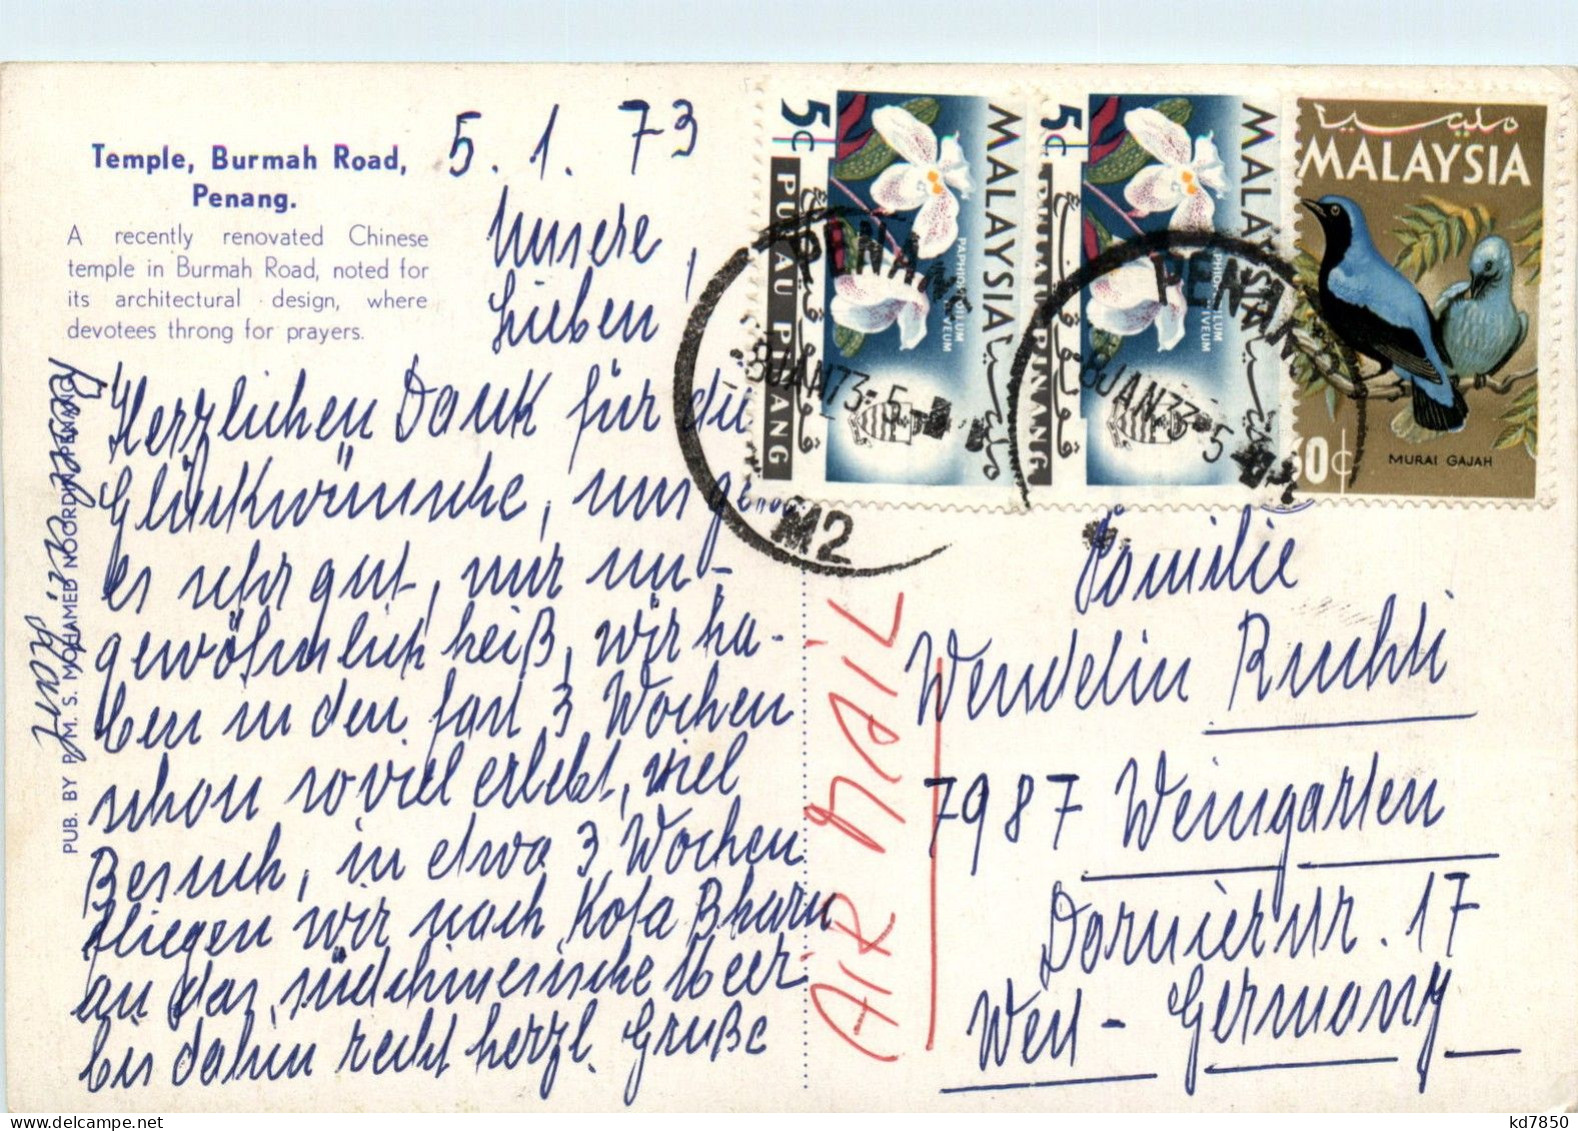 Temple, Burmah Road,
Penang.
A recently renovated Chinese
temple in Burmah Road, noted for
its architectural design, where
devotees throng for prayers.
5. 1. 73
Unsere
Lieben!
Herzlichen Dank für die
Glückwünsche, uns
es sehr gut, nur un-
gewöhnlich heiß, wir ha-
ben in den fast 3 Wochen
schon soviel erlebt, viel
Besuch, in etwa 3 Wochen
fliegen wir nach Kota Bharu
an das südchinesische Meer
bis dahin recht herzl. Grüße
PUB. BY P. M. S. MOHAMED NOORDIN, PENANG
AIR MAIL
5c
PULAU PINANG
MALAYSIA
PAPHIOPEDILUM
NIVEUM
مليسيا
5c
PULAU PINANG
MALAYSIA
PAPHIOPEDILUM
NIVEUM
مليسيا
مليسيا
MALAYSIA
MURAI GAJAH
50c
PENANG
8 JAN 73-5
M2
PENANG
8 JAN 73-5
Familie
Wendelin Ruchti
7987 Weingarten
Dornierstr. 17
West-Germany
kd7850